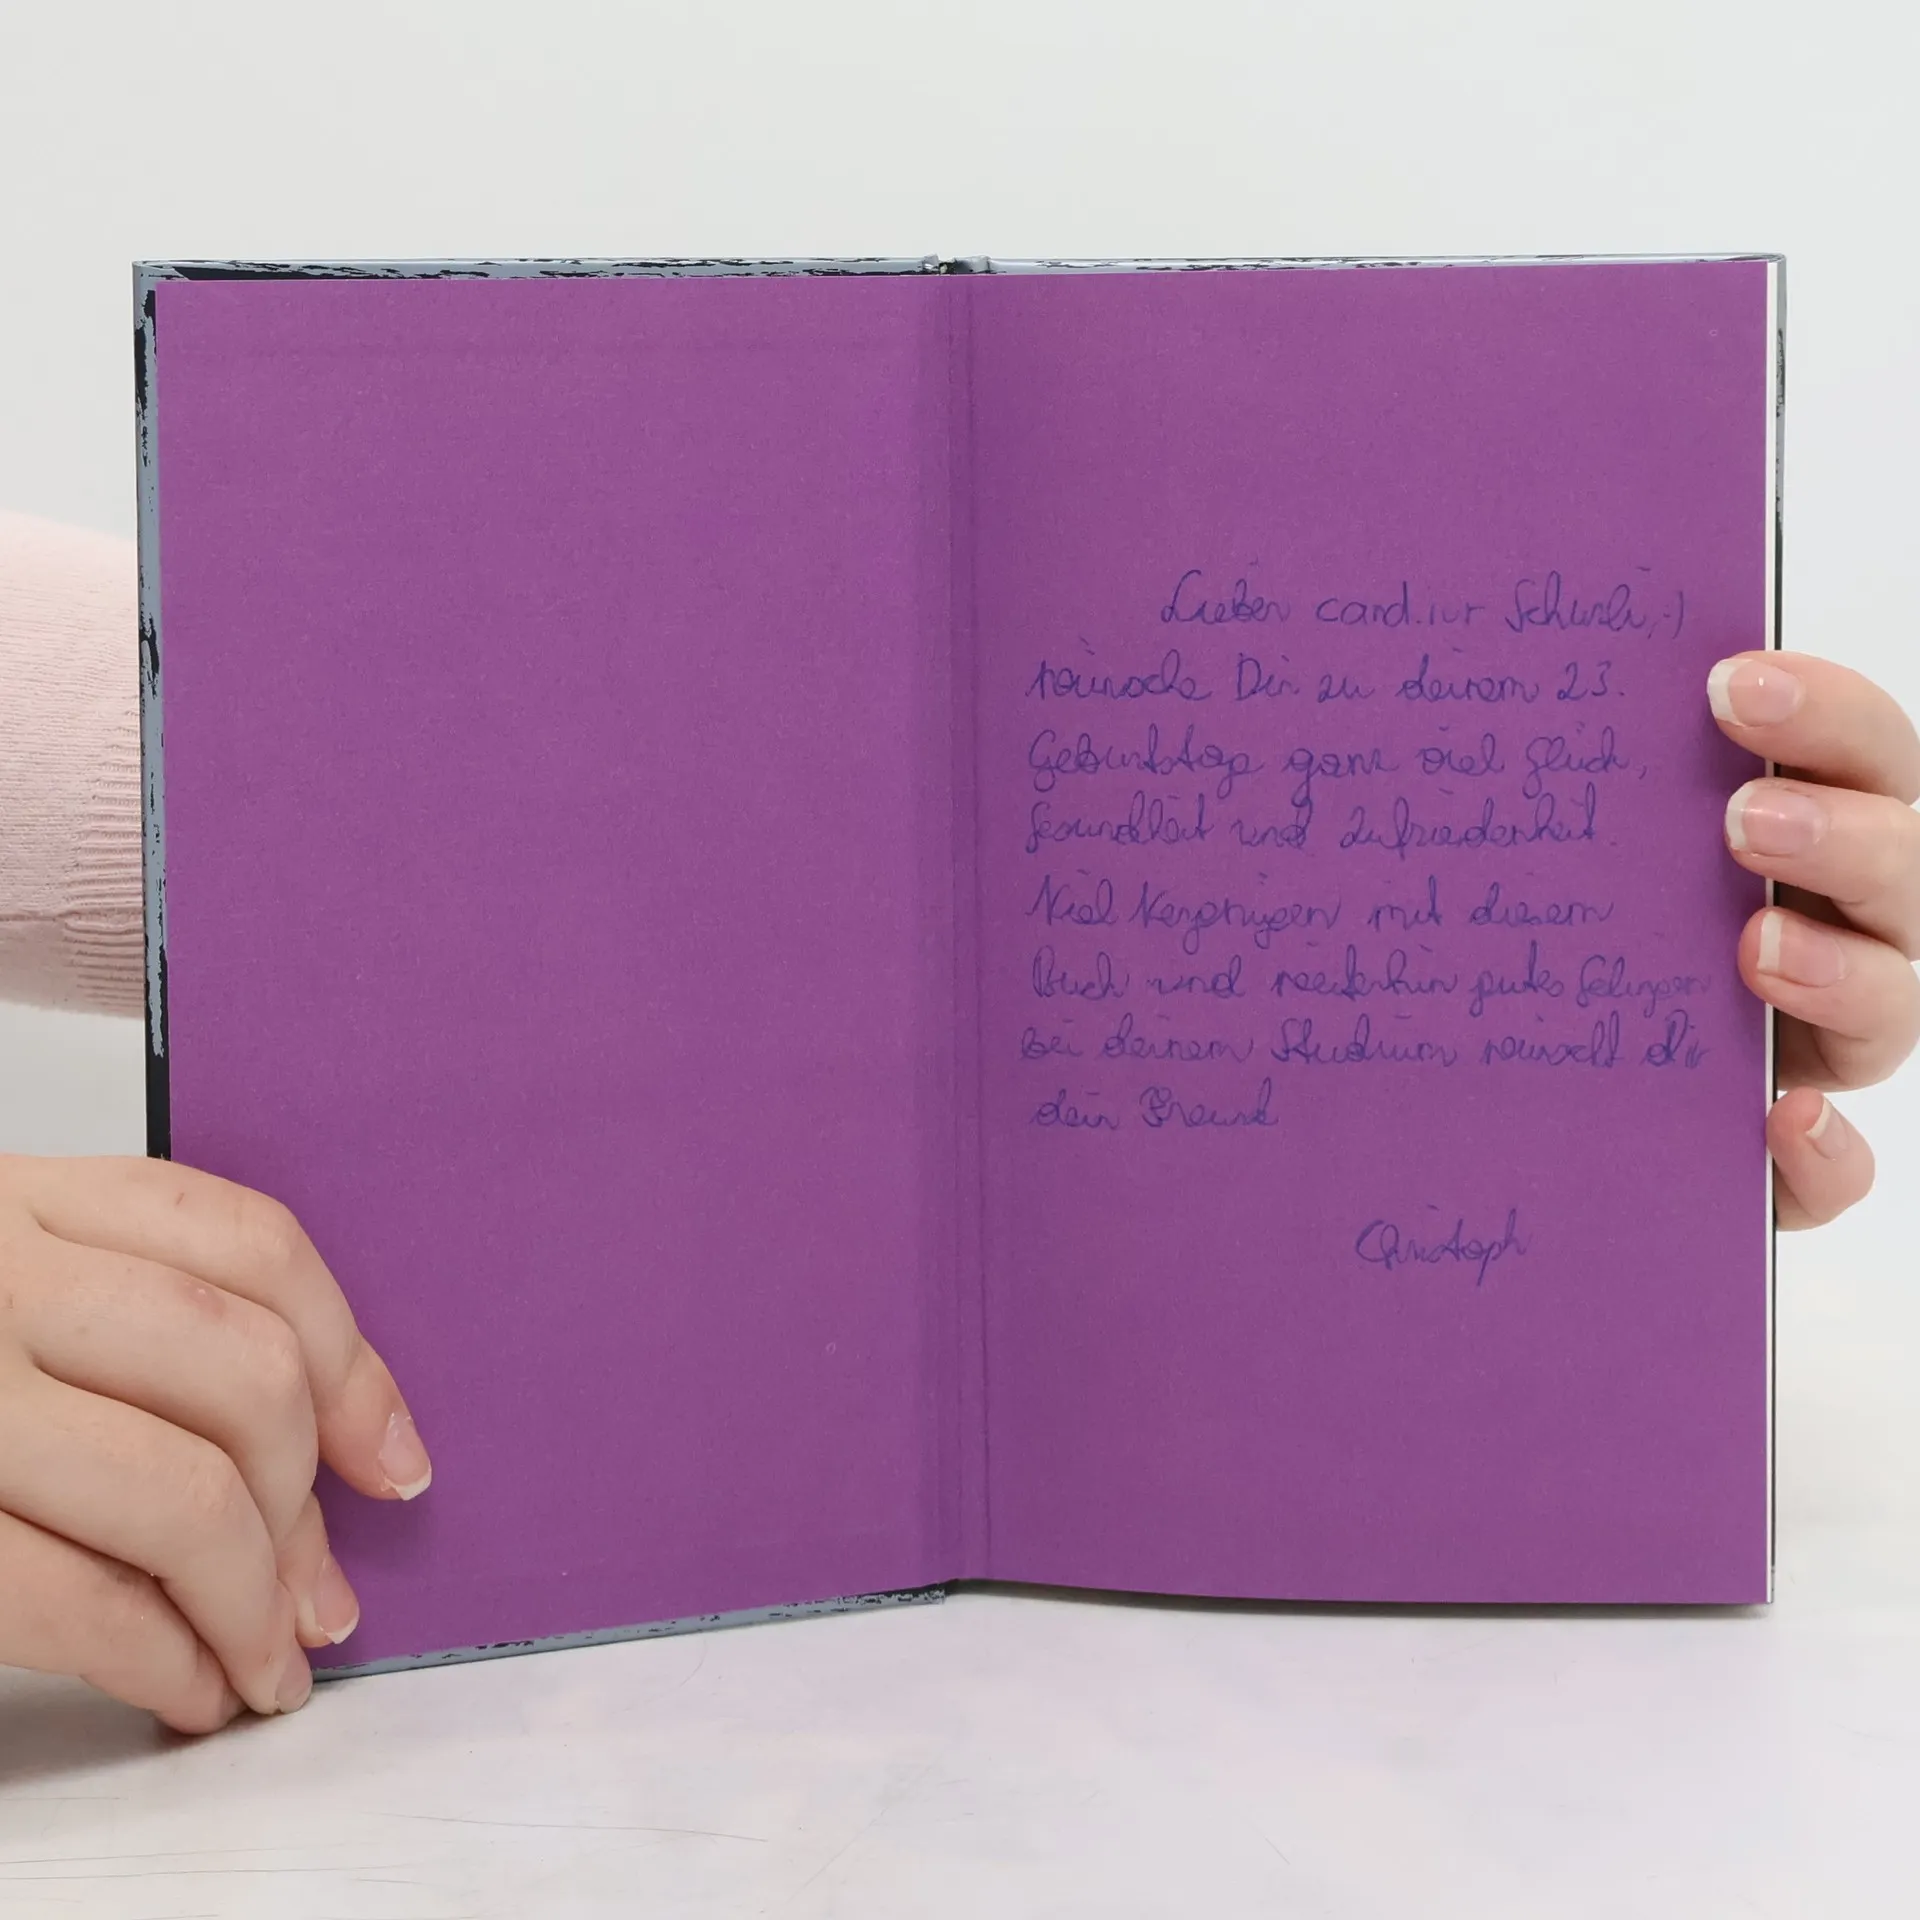 Lieber cand. iur Schurli, :-)
wünsche Dir zu deinem 23.
Geburtstag ganz viel Glück,
Gesundheit und Zufriedenheit.
Viel Vergnügen mit diesem
Buch und weiterhin gutes Gelingen
bei deinem Studium wünscht dir
dein Freund
Christoph